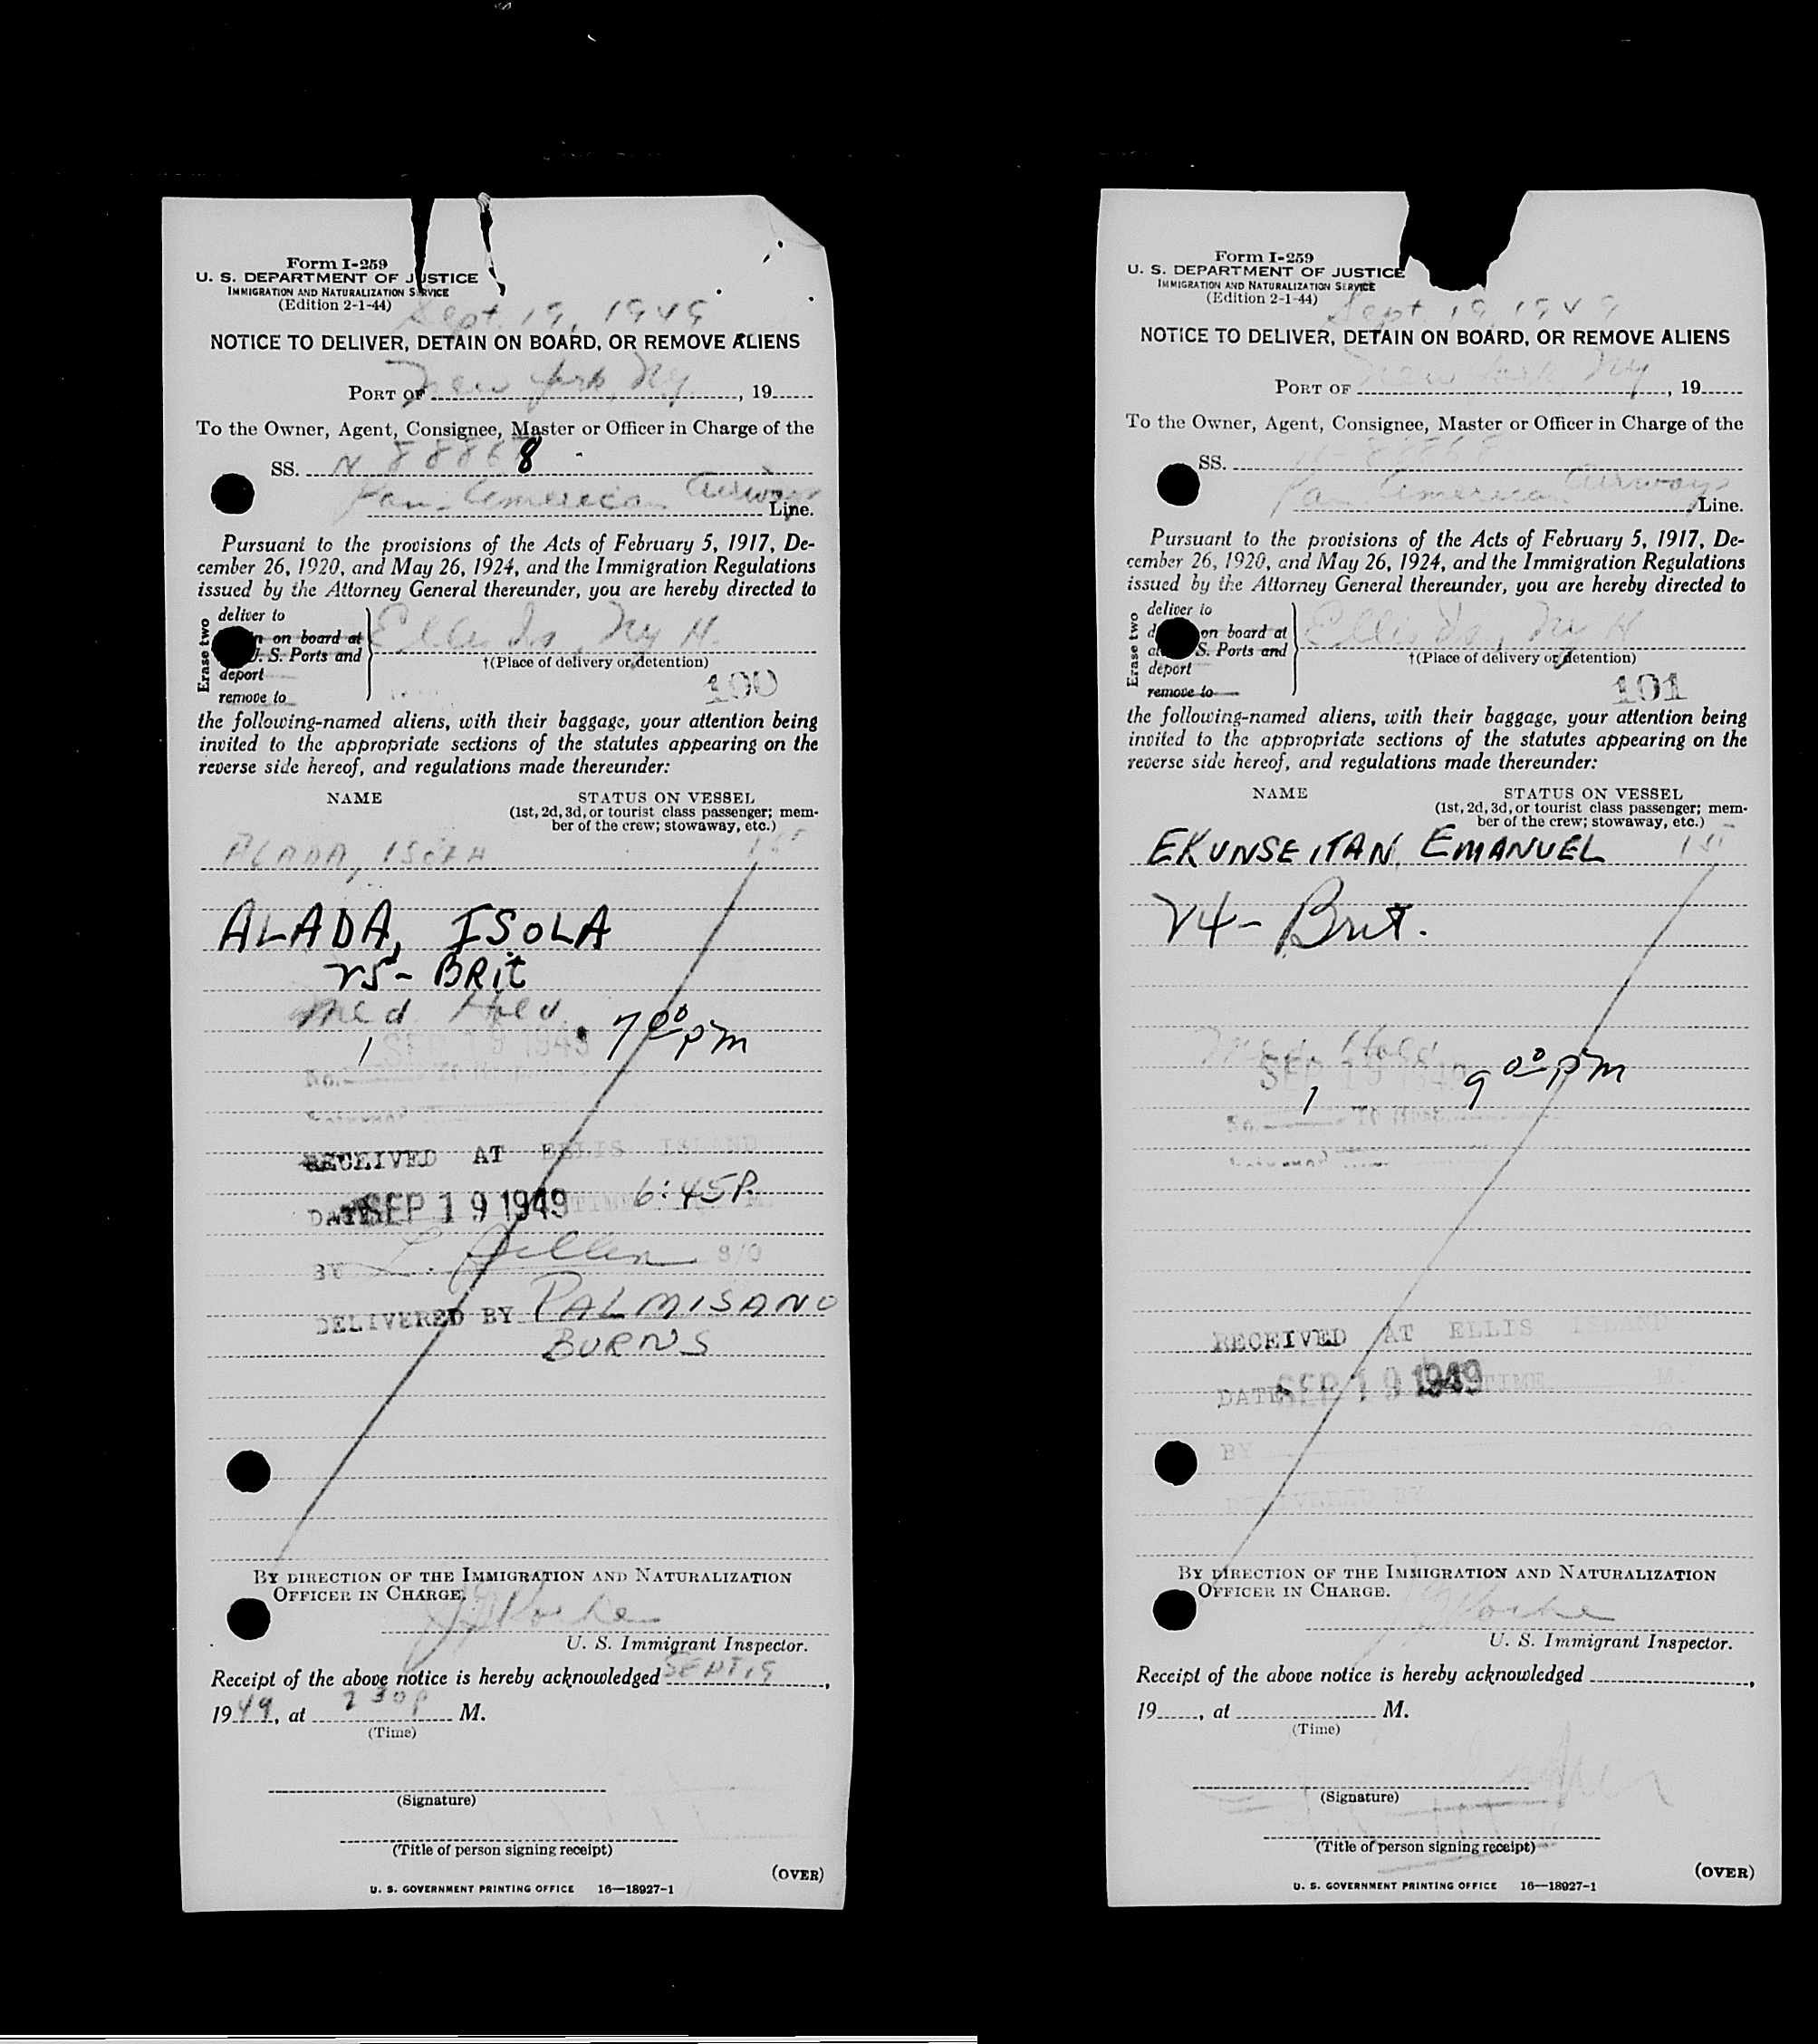 Form I-259
U. S. DEPARTMENT OF JUSTICE
IMMIGRATION AND NATURALIZATION SERVICE
(Edition 2-1-44)
Sept. 19, 1949
NOTICE TO DELIVER, DETAIN ON BOARD, OR REMOVE ALIENS
PORT OF New York, Ny. , 19
To the Owner, Agent, Consignee, Master or Officer in Charge of the
SS. N 88868
Pan American Airways
Line.
Pursuant to the provisions of the Acts of February 5, 1917, De-
cember 26, 1920, and May 26, 1924, and the Immigration Regulations
issued by the Attorney General thereunder, you are hereby directed to
Erase two
deliver to
on board at
U. S. Ports and
deport
remove to
Ellis Is, Ny H.
†(Place of delivery or detention)
100
the following-named aliens, with their baggage, your attention being
invited to the appropriate sections of the statutes appearing on the
reverse side hereof, and regulations made thereunder:
NAME STATUS ON VESSEL
(1st, 2d, 3d, or tourist class passenger; mem-
ber of the crew; stowaway, etc.)
ALADA, ISOLA 1st
ALADA, ISOLA
25 - BRIT
Med Held
SEP 19 1949 7 00 pm
1
No. To Hosp.
RECEIVED AT ELLIS ISLAND
DATE SEP 19 1949 TIME 6:45 P. M.
BY S/O
DELIVERED BY PALMISANO
BURNS
BY DIRECTION OF THE IMMIGRATION AND NATURALIZATION
OFFICER IN CHARGE.
U. S. Immigrant Inspector.
Receipt of the above notice is hereby acknowledged SEPT 19,
1949, at 2 30 P M.
(Time)
(Signature)
(Title of person signing receipt)
(OVER)
U. S. GOVERNMENT PRINTING OFFICE 16—18927-1
Form I-259
U. S. DEPARTMENT OF JUSTICE
IMMIGRATION AND NATURALIZATION SERVICE
(Edition 2-1-44)
Sept 19, 1949
NOTICE TO DELIVER, DETAIN ON BOARD, OR REMOVE ALIENS
PORT OF New York, Ny , 19
To the Owner, Agent, Consignee, Master or Officer in Charge of the
SS. N-88868
Pan American Airways
Line.
Pursuant to the provisions of the Acts of February 5, 1917, De-
cember 26, 1920, and May 26, 1924, and the Immigration Regulations
issued by the Attorney General thereunder, you are hereby directed to
Erase two
deliver to
on board at
S. Ports and
deport
remove to
Ellis Is, Ny H
†(Place of delivery or detention)
101
the following-named aliens, with their baggage, your attention being
invited to the appropriate sections of the statutes appearing on the
reverse side hereof, and regulations made thereunder:
NAME STATUS ON VESSEL
(1st, 2d, 3d, or tourist class passenger; mem-
ber of the crew; stowaway, etc.)
EKUNSEITAN, EMANUEL 1st
24 - Brit.
Med. Held
SEP 19 1949 9 00 pm
1
No. To Hosp.
RECEIVED AT ELLIS ISLAND
DATE SEP 19 1949 TIME M.
BY S/O
DELIVERED BY
BY DIRECTION OF THE IMMIGRATION AND NATURALIZATION
OFFICER IN CHARGE.
U. S. Immigrant Inspector.
Receipt of the above notice is hereby acknowledged ,
19 , at M.
(Time)
(Signature)
(Title of person signing receipt)
(OVER)
U. S. GOVERNMENT PRINTING OFFICE 16—18927-1